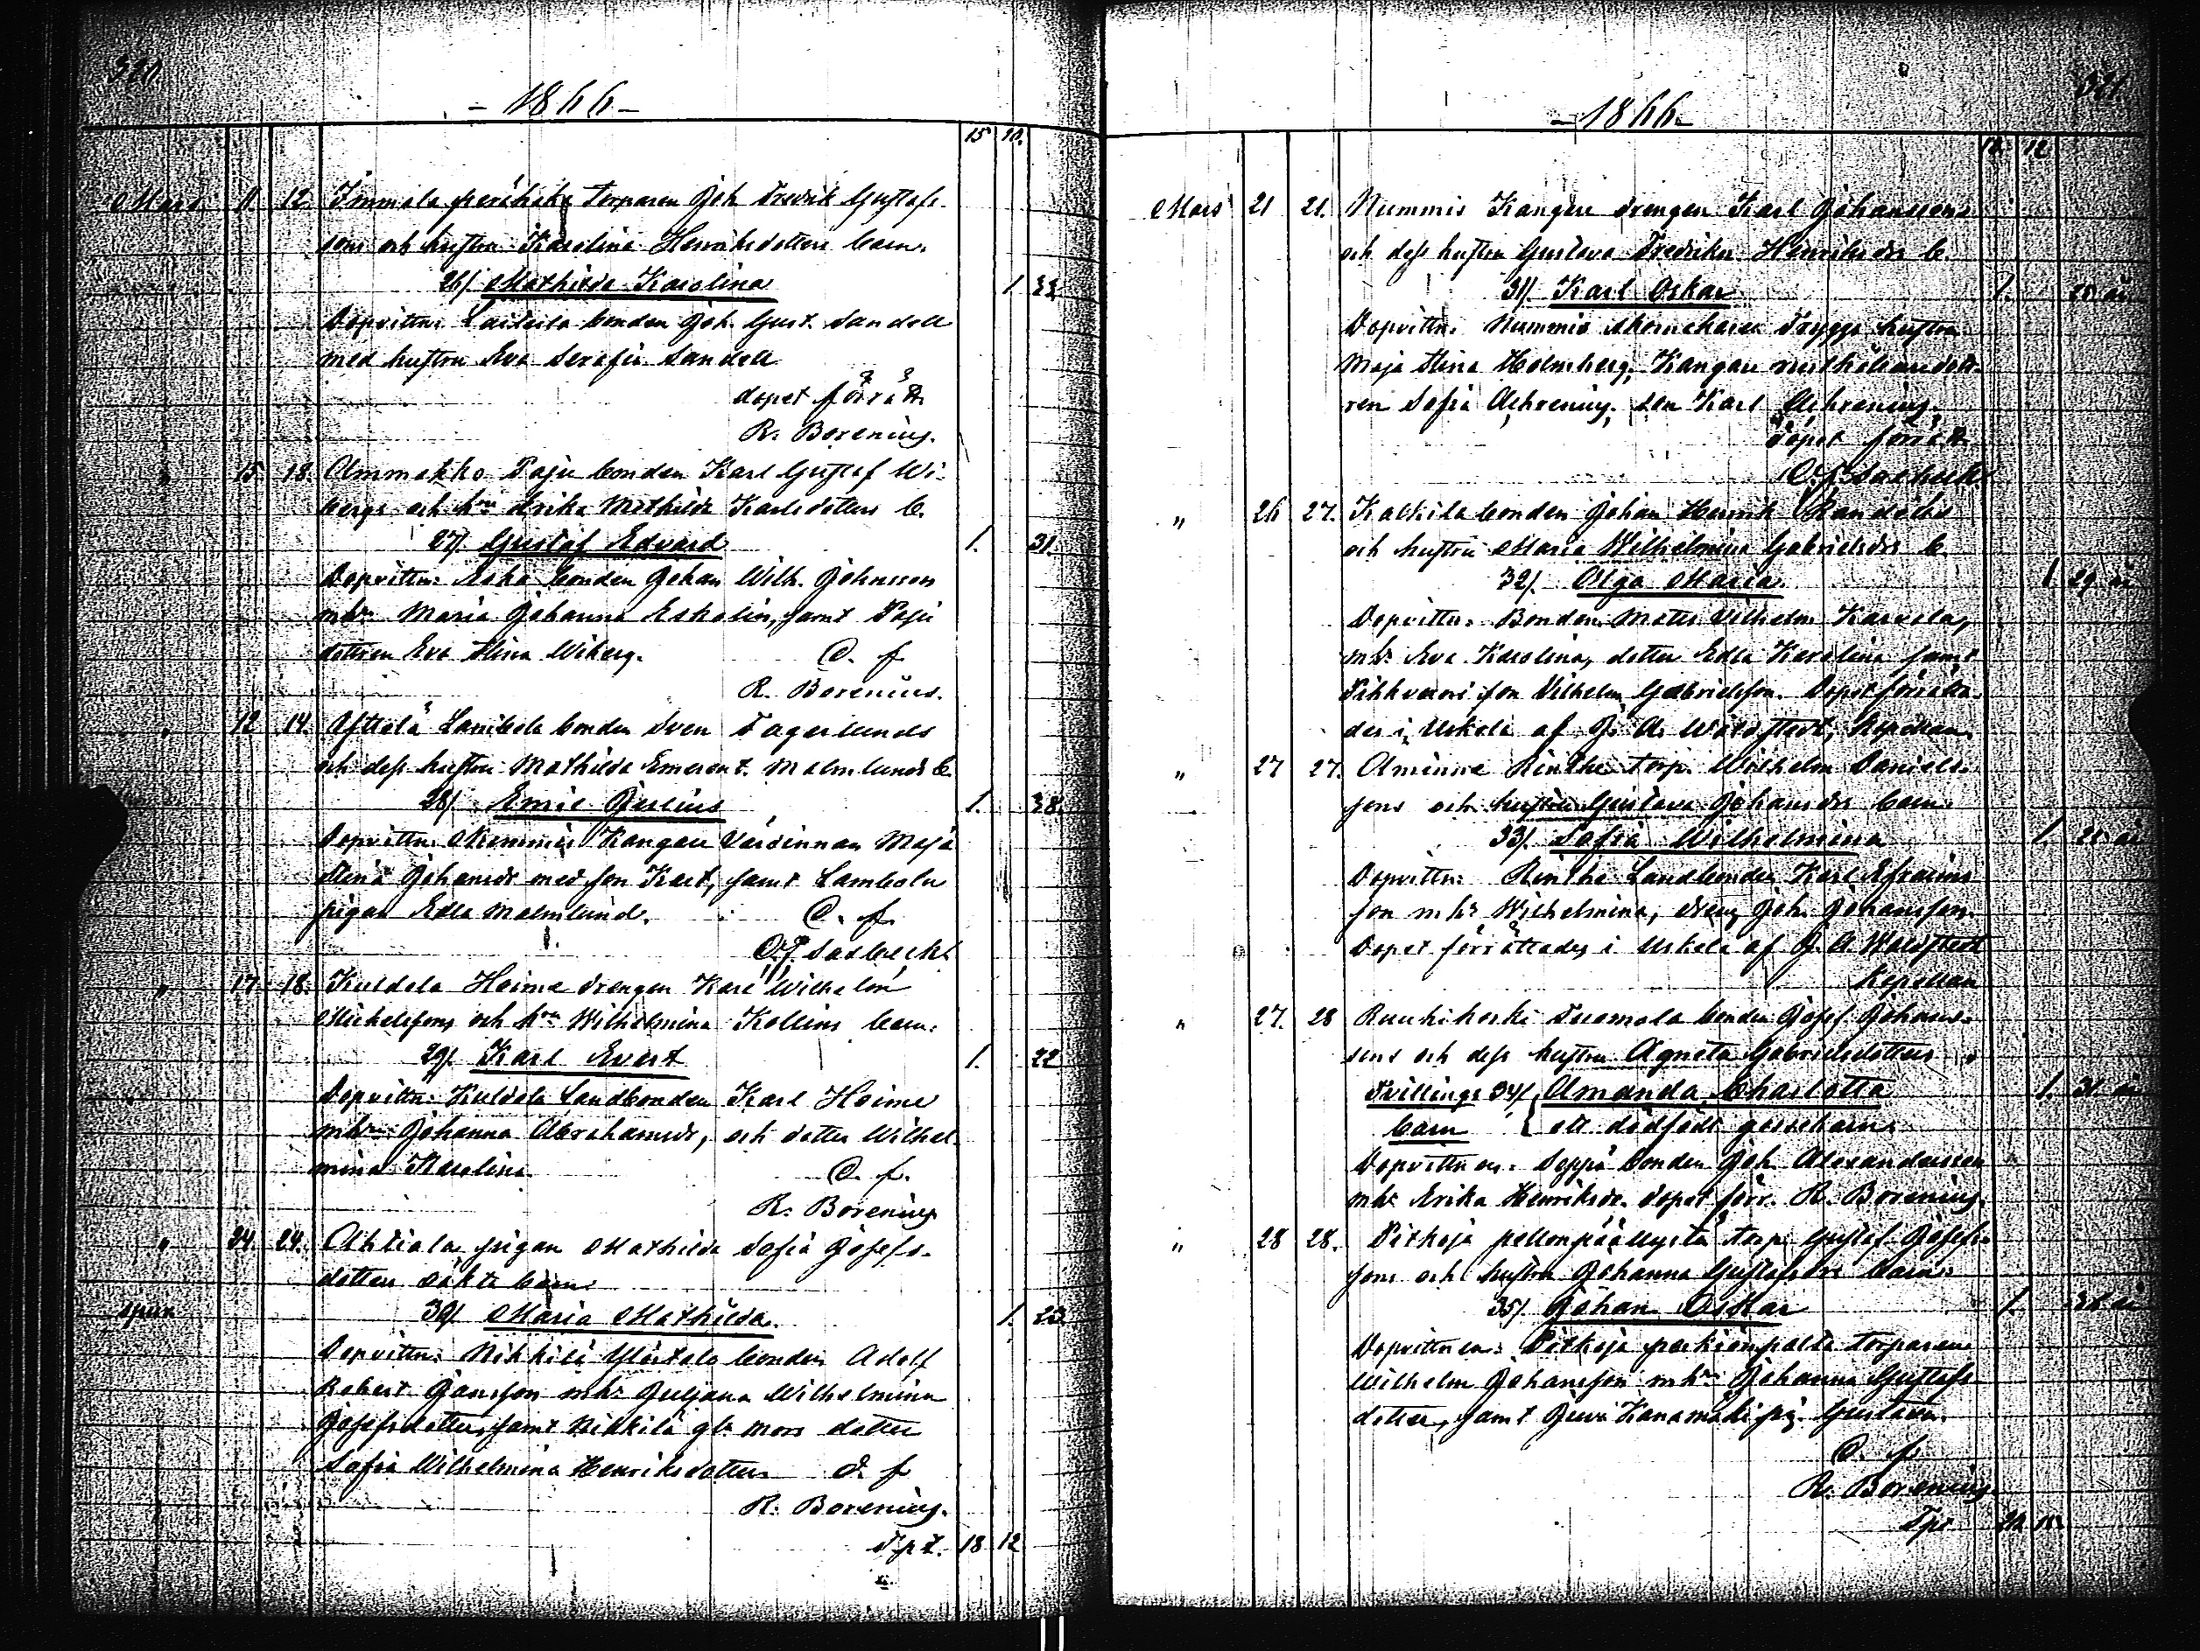 320.
- 1866 -
15 10.
Mars 11 12. Immala perähaka torparen Joh Fredrik Gustafs-
sons och hustru Karolina Henriksdotters barn.
26/. Mathilda Karolina 1. 33
Dopvittn: Laitila bonden Joh. Gust. Sandell
med hustru Eva Serafia Sandell
dopet förrätt
R. Borenius.
" 15 18. Ammakko Paju bonden Karl Gustaf Wi-
bergs och hu Erika Mathilda Karlsdotters b.
27/. Gustaf Edvard 1. 31.
Dopvittn: bonden Johan Wilh. Johnsson
mhr Maria Johanna Eskolin, samt Paju
dottren Eva Stina Wiberg. D. f.
R. Borenius.
" 12 14. Lambola bonden Sven Fagerlunds
och dess hustru Mathilda Emerent. Malmlunds b.
28/. Emil Julius 1. 38.
Dopvittn: Nummis Kangare Värdinnan Maja
Stina Johansdr med son Karl, samt Lambola
pigan Edla Malmlund. D. f.
" 17 18. Kuldala Heime drengen Karl Wilhelm
Michelssons och hru Wilhelmina Kollins barn.
29/. Karl Evert 1. 22
Dopvittn: Kuldala Landbonden Karl Heime
mhru Johanna Abrahamsdr, och dotter Wilhel-
mina Karolina D. f.
R. Borenius
" 24 24. Ahtiala pigan Mathilda Sofia Josefs-
dotters oäkta barn.
30/. Maria Mathilda. 1. 23.
Dopvittn: Nikkilä Ylöstalo bonden Adolf
Robert Jansson mhr Juljana Wilhelmina
Josefsdotter, samt Nikkilä gb. Mors dotter
Sofia Wilhelmina Henriksdotter D. f
R. Borenius.
Tpt. 18 12
321.
- 1866 -
12
Mars 21 21. Nummis Kangare drengen Karl Johanssons
och dess hustru Gustava Fredrika Henriksdrs b.
31/. Karl Oskar 1.
Dopvittn: Nummis Skomakaren Tryggs hustru
Maja Stina Holmberg, Kangare
Sofia son Karl
Dopet förrätt
" 26 27. Kaukila bonden Johan Henrik
och hustru Maria Wilhelmina Gabrielsdrs b.
32/. Olga Maria. 1. 29 år
Dopvittn: Bonden Mats Vilhelm Karvela,
mhr Eva Karolina, dotter Edla Karolina samt
son Vilhelm Gabrielsson. Dopet förrätta-
des i Uskela af J. A. Waldstedt, Kapellan.
" 27 27. Aminne Rinthe torp. Wilhelm Daniels-
sons och hustru Gustava Johansdrs barn.
33/. Sofia Wilhelmina 1.
Dopvittn: Rinthe Landbonden Karl Efraims-
son mhr Wilhelmina, dreng Joh. Johansson.
Dopet förrättades i Uskela af J. A. Waldstedt
Kapellan
" 27. 28 Ruukikoski Tuomola bonden Josef Johans-
sons och dess hustru Agneta Gabrielsdotters
Tvillings 34/. Amanda Charlotta 1. 31 år
barn { ett dödfödt gossebarn.
Dopvittnen: Seppä bonden Joh. Alexandersson
mhr Erika Henriksdr. dopet förr. R. Borenius.
" 28 28. Pitkoja pellonpää torp. Gustaf Josefs-
sons och hustru Johanna Gustafsdrs barn.
35/. Johan Oskar 1.
Dopvittnen: Pitkoja torparen
Wilhelm Johansson mhru Johanna Gustafs-
dotter, samt pig. Gustava.
D. f
R. Borenius
Tpt